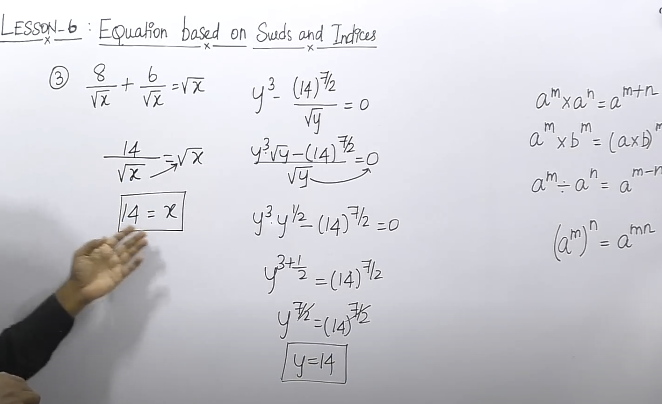 LESSON-6 : Equation based on Surds and Indices
③ 8/√x + 6/√x = √x
14/√x = √x
14 = x
y³ - (14)^7/2 / √y = 0
y³√y - (14)^7/2 / √y = 0
y³·y^1/2 - (14)^7/2 = 0
y^3+1/2 = (14)^7/2
y^7/2 = (14)^7/2
y = 14
a^m × a^n = a^m+n
a^m × b^m = (a×b)^m
a^m ÷ a^n = a^m-n
(a^m)^n = a^mn